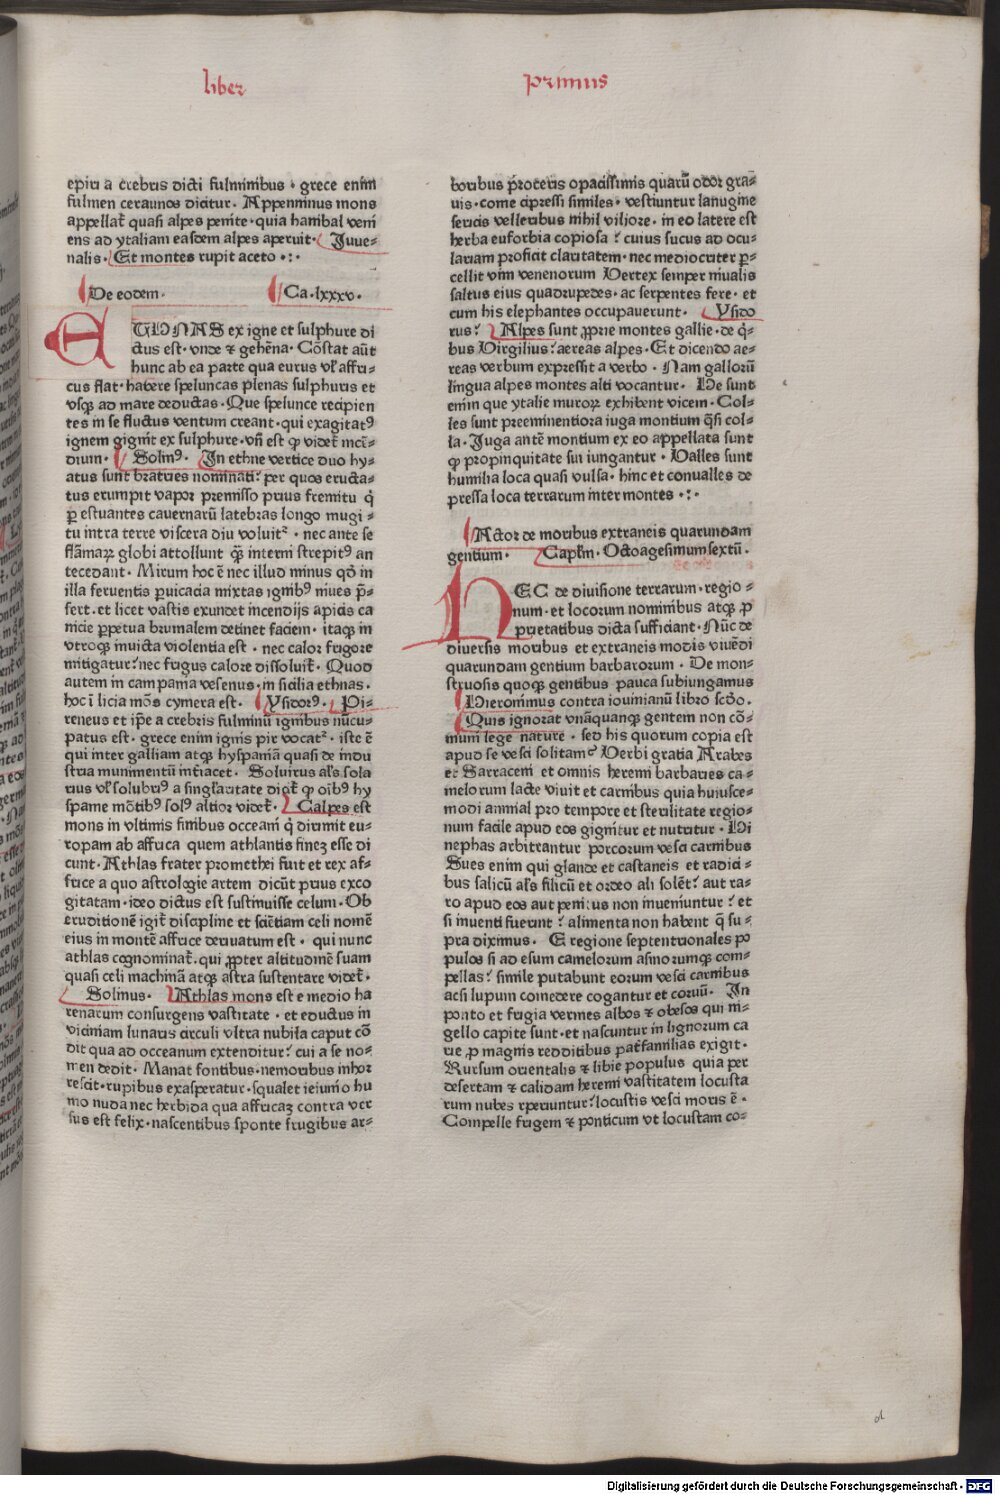 liber primus
epiri a crebris dicti fulminibus · grece enim
fulmen ceraunos dicitur. Appenninus mons
appellat̃ quasi alpes penite · quia hanibal veni
ens ad ytaliam easdem alpes aperuit · Juue⸗
nalis · Et montes rupit aceto ·:·
De eodem. Ca. lxxxv.
ex igne et sulphure di
ctus est · vnde ⁊ gehẽna · Cõstat aũt
hunc ab ea parte qua eurus vł affri⸗
cus flat · habere speluncas plenas sulphuris et
vsqꝫ ad mare deductas · Que spelunce recipien
tes in se fluctus ventum creant · qui exagitatꝰ
ignem gignit ex sulphure · vñ est ꝙ videt̃ incẽ⸗
dium · Solinꝰ · In ethne vertice duo hy⸗
atus sunt bratries nominati? per quos eructa⸗
tus erumpit vapor premisso prius fremitu q̇
ꝑ estuantes cauernarũ latebras longo mugi⸗
tu intra terre viscera diu voluit᷑ · nec ante se
flãmaꝝ globi attollunt q̃ꝫ interni strepitꝰ an
tecedant · Mirum hoc ẽ nec illud minus qđ in
illa feruentis ꝑuicacia mixtas ignibꝰ niues p̃⸗
fert · et licet vastis exundet incendijs apicis ca
nicie ꝑpetua brumalem detinet faciem · itaqꝫ in
vtroqꝫ inuicta violentia est · nec calor frigore
mitigatur? nec frigus calore dissoluit̃ · Quod
autem in campania vesenus · in sicilia ethnas ·
hoc ĩ licia mõs cymera est · Ysidorꝰ · Pi⸗
reneus et ip̃e a crebris fulminũ ignibus nũcu⸗
patus est · grece enim ignis pir vocat᷑ · iste ẽ
qui inter galliam atqꝫ hyspaniã quasi de indu
stria munimentũ int̃iacet · Soluirus als sola
rius vł solubrꝰ a singlaritate dict̃ ꝙ oĩbꝰ hy
spanie mõtibꝰ solꝰ altior videt̃ · Calpes est
mons in vltimis finibus occeani q̇ dirimit eu⸗
ropam ab affrica quem athlantis fineꝫ esse di
cunt · Athlas frater promethei fuit et rex af⸗
frice a quo astrologie artem dicũt prius exco
gitatam · ideo dictus est sustinuisse celum · Ob
eruditionẽ igit̃ discipline et sciẽtiam celi nomẽ
eius in montẽ affrice deriuatum est · qui nunc
athlas cognominat̃ · qui ꝓpter altitudinẽ suam
quasi celi machinã atqꝫ astra sustentare videt̃ ·
Solinus · Athlas mons est e medio ha
renarum consurgens vastitate · et eductus in
viciniam lunaris circuli vltra nubila caput cõ
dit qua ad occeanum extenditur? cui a se no⸗
men dedit · Manat fontibus · nemoribus inhor
rescit · rupibus exasperatur · squalet ieiunio hu
mo nuda nec herbida qua affricaꝫ contra ver
sus est felix · nascentibus sponte frugibus ar⸗
boribus p̃roceris opacissimis quarũ odor gra⸗
uis · come cipressi similes · vestiuntur lanugine
sericis velleribus nihil viliore · in eo latere est
herba euforbia copiosa? cuius sucus ad ocu⸗
lariam proficit claritatem · nec mediocriter ꝑ⸗
cellit vim venenorum Vertex semper niualis
saltus eius quadrupedes · ac serpentes fere · et
cum his elephantes occupauerunt · Ysido
rus? Alpes sunt ꝓprie montes gallie · de q̇⸗
bus Virgilius? aereas alpes · Et dicendo ae⸗
reas verbum expressit a verbo · Nam gallorũ
lingua alpes montes alti vocantur · He sunt
enim que ytalie muroꝝ exhibent vicem · Col⸗
les sunt preeminentiora iuga montium q̃si col⸗
la · Juga antẽ montium ex eo appellata sunt
ꝙ propinquitate sui iungantur · Valles sunt
humilia loca quasi vulsa · hinc et conualles de
pressa loca terrarum inter montes ·:·
Actor de moribus extraneis quarundam
gentium · Caplm̃ · Octoagesimumsextũ ·
HEC de diuisione terrarum · regio⸗
num · et locorum nominibus atqꝫ ꝓ
prietatibus dicta sufficiant · Nũc de
diuersis moribus et extraneis modis viuẽdi
quarundam gentium barbarorum · De mon⸗
struosis quoqꝫ gentibus pauca subiungamus
Hieronimus contra iouinianũ libro scđo ·
Quis ignorat vnãquanqꝫ gentem non cõ⸗
muni lege nature · sed his quorum copia est
apud se vesci solitam? Verbi gratia Arabes
et Sarraceni et omnis heremi barbaries ca⸗
melorum lacte viuit et carnibus quia huiusce⸗
modi animal pro tempore et sterilitate regio⸗
num facile apud eos gignitur et nutritur · Hi
nephas arbitrantur porcorum vesci carnibus
Sues enim qui glande et castaneis et radici⸗
bus salicũ als filicũ et ordeo ali solẽt? aut ra⸗
ro apud eos aut penitus non inueniuntur? et
si inuenti fuerint? alimenta non habent q̃ su⸗
pra diximus · E regione septentrionales po
pulos si ad esum camelorum asinorumqꝫ com⸗
pellas? simile putabunt eorum vesci carnibus
acsi lupum comedere cogantur et coruũ · In
ponto et frigia vermes albos ⁊ obesos qui ni⸗
gello capite sunt · et nascuntur in lignorum ca
rie ꝓ magnis redditibus pat̃familias exigit ·
Rursum orientalis ⁊ libie populus quia per
desertam ⁊ calidam heremi vastitatem locusta
rum nubes rperiuntur? locustis vesci moris ẽ ·
Compelle frigem ⁊ ponticum vt locustam co⸗
d
Digitalisierung gefördert durch die Deutsche Forschungsgemeinschaft - DFG